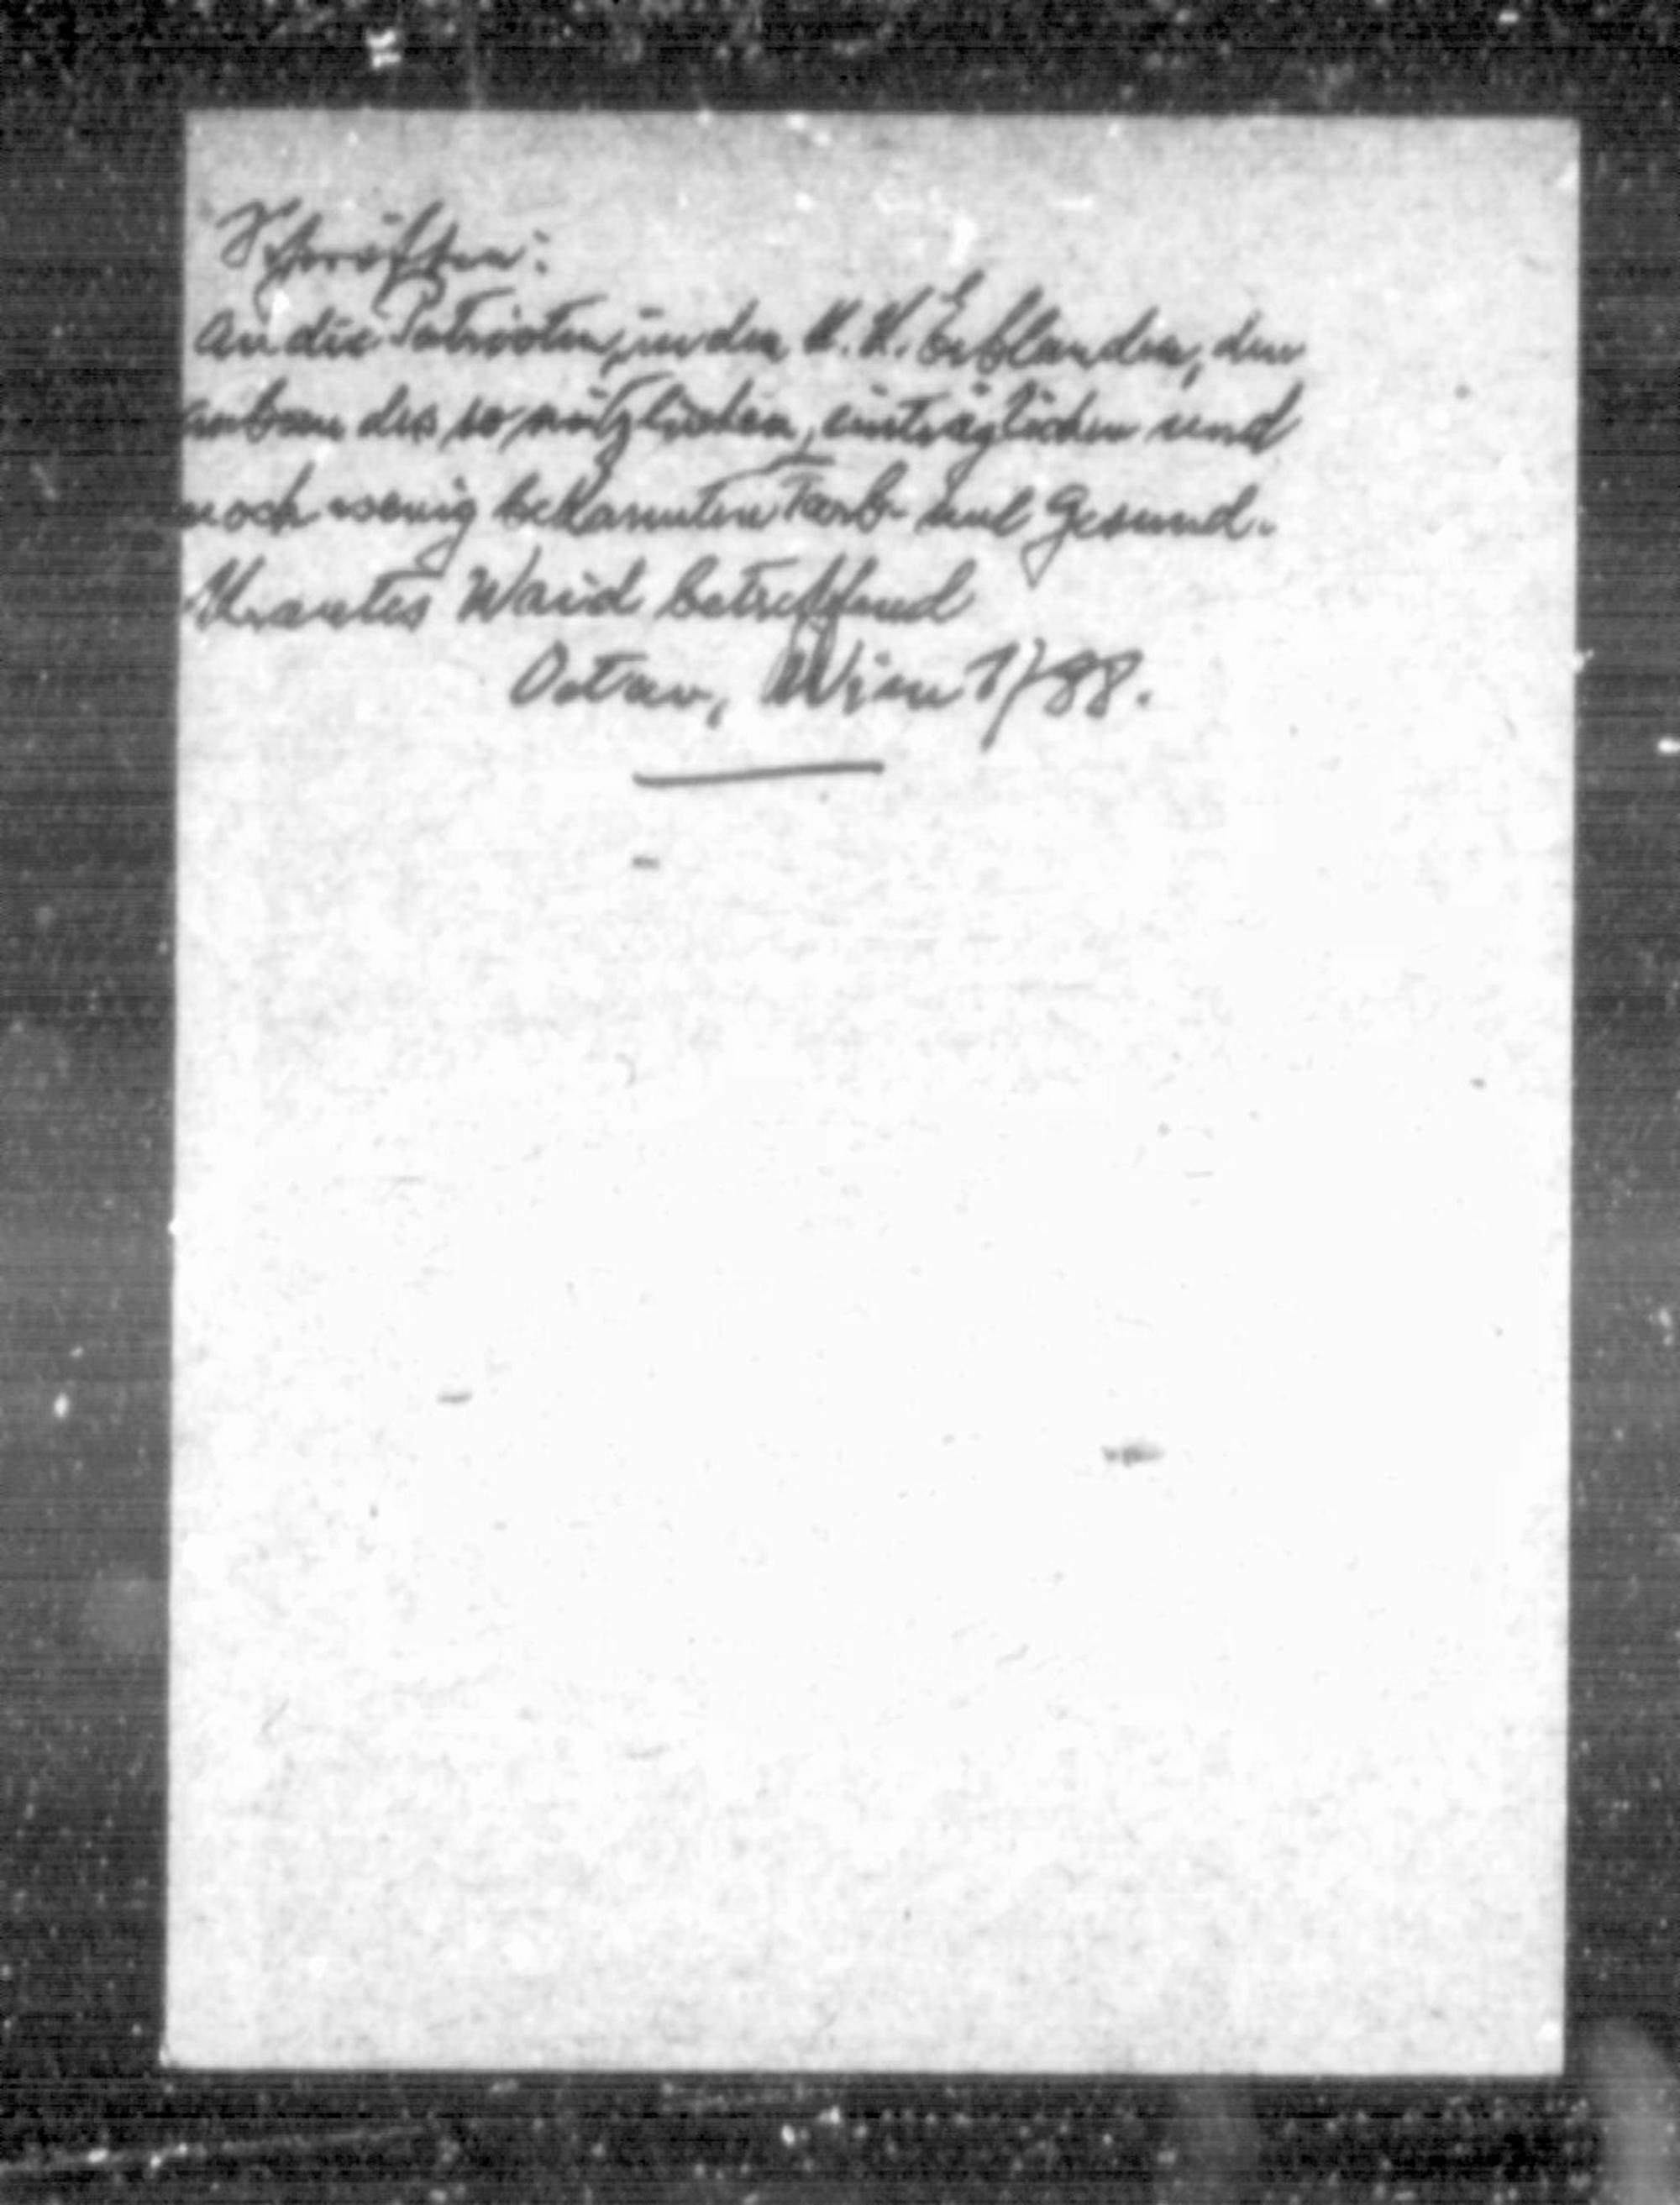 Schriften:
An die Patrioten, in den K. K. Erblanden, den
anbau des so nützlichen, einträglichen und
noch wenig bekannten Farb- und Gesund-
Krautes Waid betreffend
Octav, Wien 1788.